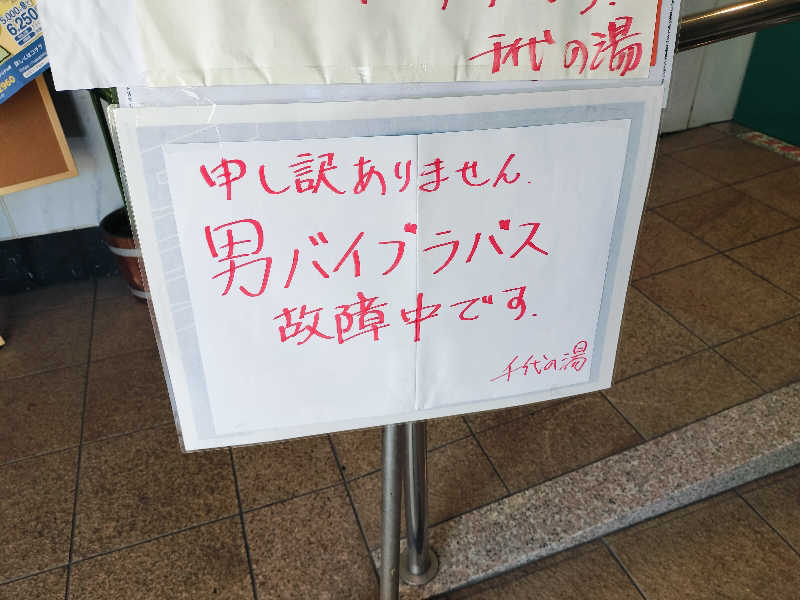 5,000
6,250
千代の湯
申し訳ありません.
男バイブラバス
故障中です.
千代の湯